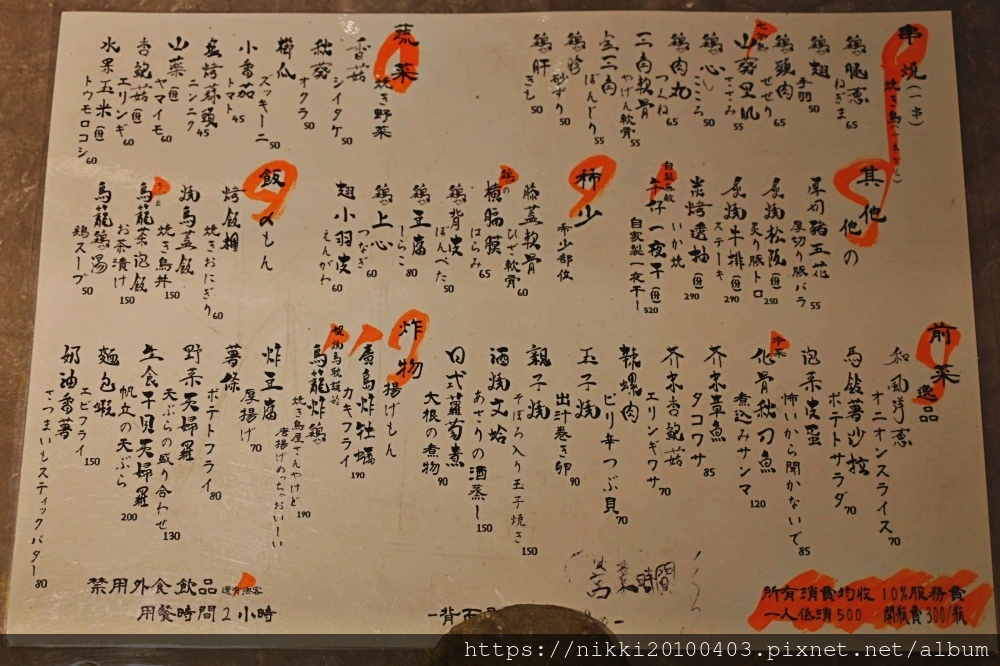 串燒(一串)
焼き鳥
鷄腿蔥
ねぎま 65
鷄翅
手羽 50
鷄頸肉
せせり 65
七分熟
山葵里肌
ささみ 55
鷄心
こころ 50
鷄肉丸
つくね 65
三角軟骨
やげん軟骨 55
ぼんじり 55
鷄胗
砂ずり 50
鷄肝
きも 50
蔬菜
焼き野菜
香菇
シイタケ 50
秋葵
オクラ 50
櫛瓜
ズッキーニ 50
小番茄
トマト 45
ニンニク 45
山藥(份)
ヤマイモ 60
杏鮑菇(份)
エリンギ 60
水果玉米(份)
トウモロコシ 60
其他
他の
厚切豬五花
厚切り豚バラ 55
炙燒松阪(份)
炙り豚トロ 250
炙燒牛排(份)
ステーキ 290
炭烤透抽(份)
いか焼 290
自製無敵
午仔一夜干(份)
自家製一夜干し 320
稀少
希少部位
膝蓋軟骨
ひざ軟骨 60
鷄の
橫膈膜
はらみ 65
鷄背皮
ぼんべた 50
鷄豆腐
しらこ 80
鷄上心
つなぎ 60
翅小羽皮
えんがわ 60
飯
〆もん
烤飯糰
焼きおにぎり 60
燒鳥蓋飯
焼き鳥丼 150
烏龍茶泡飯
お茶漬け 150
烏龍鷄湯
鶏スープ 50
前菜
逸品
和風洋蔥
オニオンスライス 70
馬鈴薯沙拉
ポテトサラダ 70
泡菜皮蛋
怖いから聞かないで 85
冷菜
化骨秋刀魚
煮込みサンマ 120
芥末章魚
タコワサ 85
芥末杏鮑菇
エリンギワサ 70
辣螺肉
ピリ辛つぶ貝 70
玉子燒
出汁巻き卵 90
親子燒
そぼろ入り玉子焼き 150
酒燒文蛤
あさりの酒蒸し 150
日式蘿蔔煮
大根の煮物 90
炸物
揚げもん
廣島炸牡蠣
カキフライ 190
烏龍炸鷄
焼き鳥屋さんやけど
唐揚げめっちゃおいしい 190
炸豆腐
厚揚げ 70
薯條
ポテトフライ 80
野菜天婦羅
天ぷらの盛り合わせ 130
生食干貝天婦羅
帆立の天ぷら 200
麵包蝦
エビフライ 150
奶油番薯
さつまいもスティックバター 80
禁用外食飲品
用餐時間2小時
一背面
時間
所有消費均收 10%服務費
一人低消500 開瓶費300/瓶
https://nikki20100403.pixnet.net/album